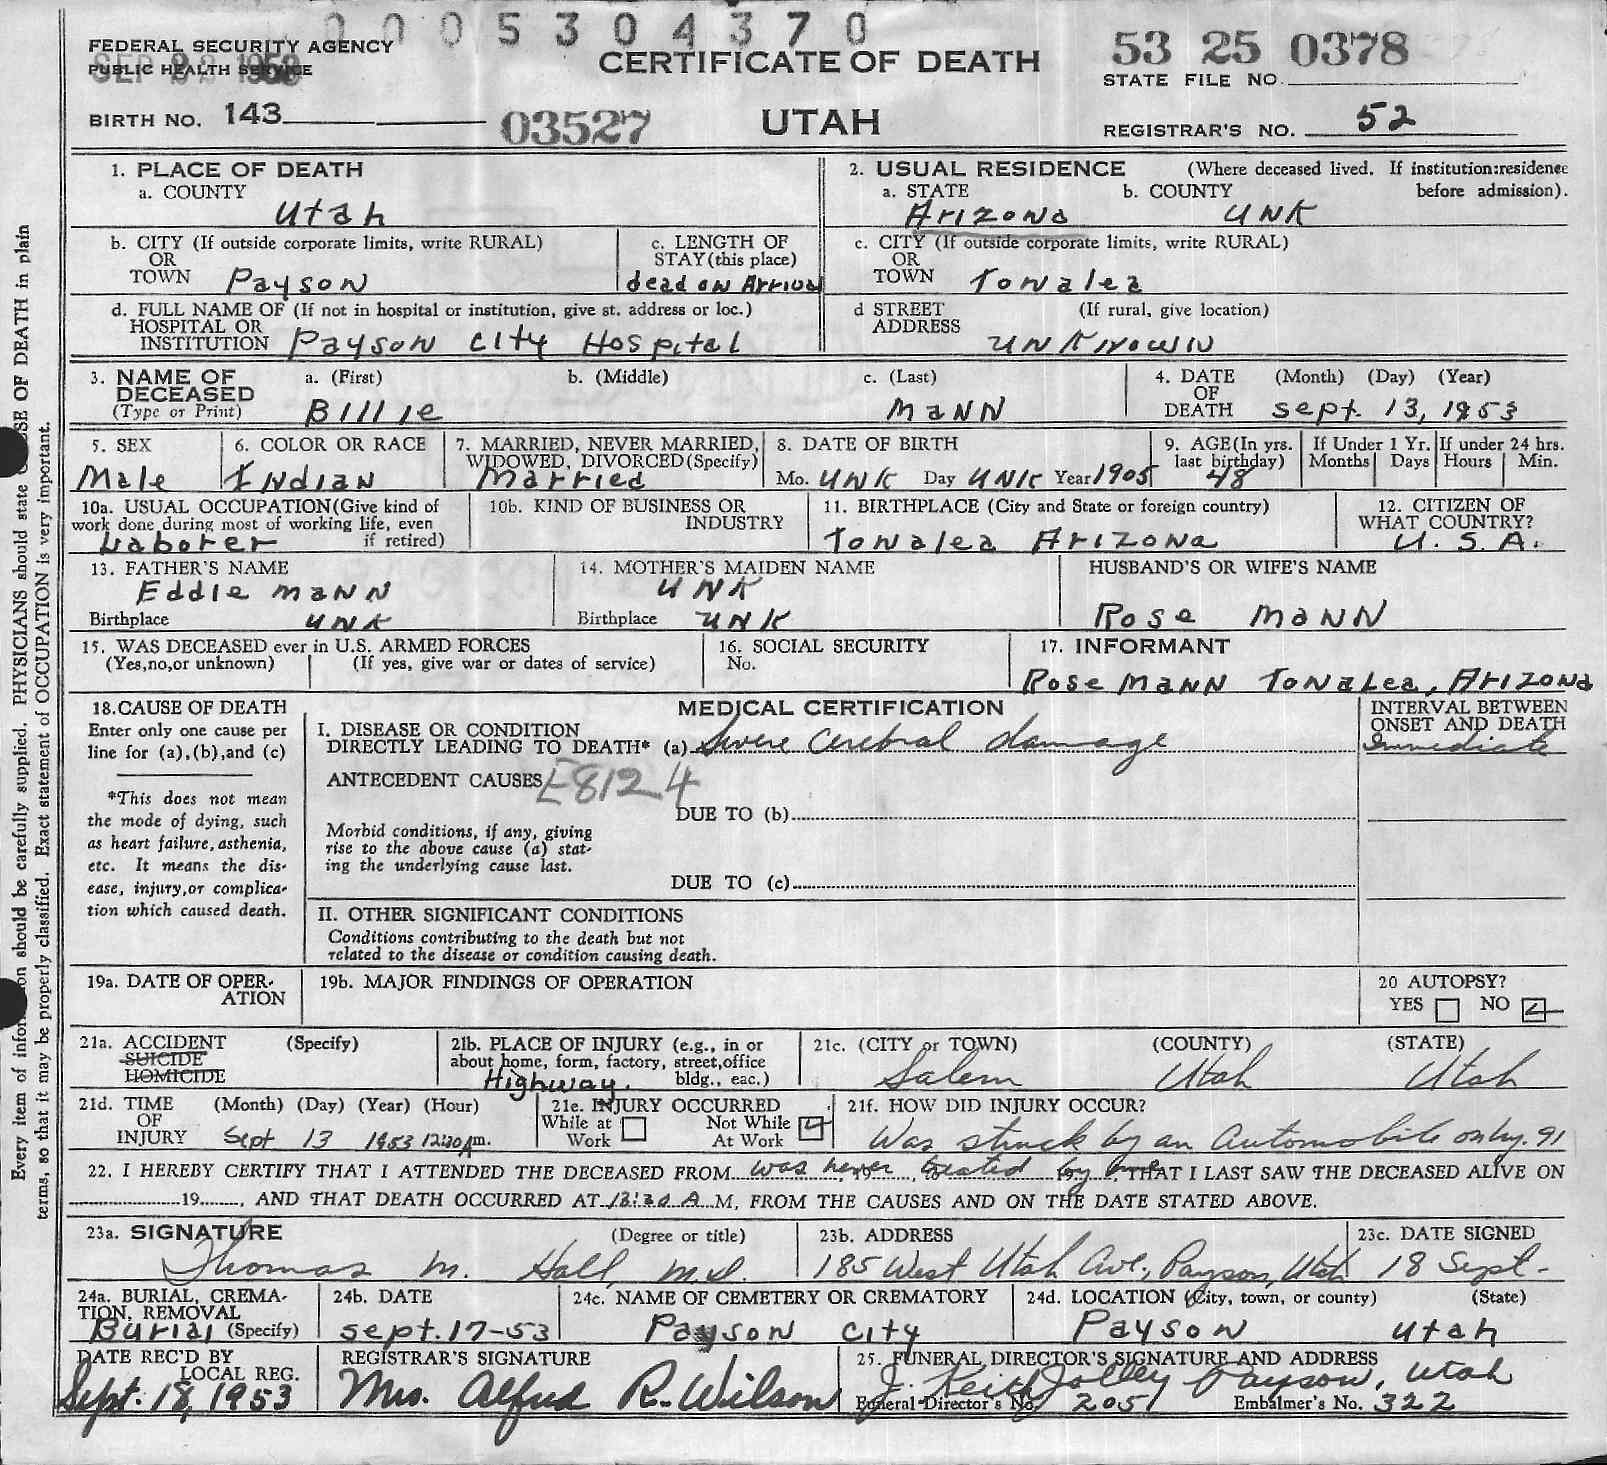 0005304370
FEDERAL SECURITY AGENCY
PUBLIC HEALTH SERVICE
SEP 22 1953
CERTIFICATE OF DEATH
53 25 0378
STATE FILE NO.
BIRTH NO. 143
03527
UTAH
REGISTRAR'S NO. 52
1. PLACE OF DEATH
a. COUNTY
Utah
2. USUAL RESIDENCE (Where deceased lived. If institution:residence before admission).
a. STATE b. COUNTY
Arizona UNK
b. CITY (If outside corporate limits, write RURAL)
OR
TOWN Payson
c. LENGTH OF
STAY(this place)
dead on Arrival
c. CITY (If outside corporate limits, write RURAL)
OR
TOWN Tonalea
d. FULL NAME OF (If not in hospital or institution, give st. address or loc.)
HOSPITAL OR
INSTITUTION Payson City Hospital
d STREET (If rural, give location)
ADDRESS
UNKNOWN
3. NAME OF DECEASED
(Type or Print)
a. (First) b. (Middle) c. (Last)
Billie Mann
4. DATE OF DEATH (Month) (Day) (Year)
Sept. 13, 1953
5. SEX
Male
6. COLOR OR RACE
Indian
7. MARRIED, NEVER MARRIED,
WIDOWED, DIVORCED(Specify)
Married
8. DATE OF BIRTH
Mo. UNK Day UNK Year 1905
9. AGE(In yrs.
last birthday)
48
If Under 1 Yr.
Months Days
If under 24 hrs.
Hours Min.
10a. USUAL OCCUPATION(Give kind of
work done during most of working life, even
if retired)
Laborer
10b. KIND OF BUSINESS OR
INDUSTRY
11. BIRTHPLACE (City and State or foreign country)
Tonalea Arizona
12. CITIZEN OF
WHAT COUNTRY?
U. S. A.
13. FATHER'S NAME
Eddie Mann
Birthplace UNK
14. MOTHER'S MAIDEN NAME
UNK
Birthplace UNK
HUSBAND'S OR WIFE'S NAME
Rose Mann
15. WAS DECEASED ever in U.S. ARMED FORCES
(Yes,no,or unknown) (If yes, give war or dates of service)
16. SOCIAL SECURITY
No.
17. INFORMANT
Rose Mann Tonalea, Arizona
18.CAUSE OF DEATH
Enter only one cause per
line for (a),(b),and (c)
*This does not mean
the mode of dying, such
as heart failure, asthenia,
etc. It means the dis-
ease, injury,or complica-
tion which caused death.
MEDICAL CERTIFICATION
I. DISEASE OR CONDITION
DIRECTLY LEADING TO DEATH* (a) Severe cerebral damage
INTERVAL BETWEEN
ONSET AND DEATH
Immediate
ANTECEDENT CAUSES E812.4
DUE TO (b)
Morbid conditions, if any, giving
rise to the above cause (a) stat-
ing the underlying cause last.
DUE TO (c)
II. OTHER SIGNIFICANT CONDITIONS
Conditions contributing to the death but not
related to the disease or condition causing death.
19a. DATE OF OPER-
ATION
19b. MAJOR FINDINGS OF OPERATION
20 AUTOPSY?
YES NO
21a. ACCIDENT (Specify)
SUICIDE
HOMICIDE
21b. PLACE OF INJURY (e.g., in or
about home, form, factory, street,office
bldg., eac.)
Highway.
21c. (CITY or TOWN) (COUNTY) (STATE)
Salem Utah Utah
21d. TIME OF INJURY (Month) (Day) (Year) (Hour)
Sept 13 1953 12:30 A m.
21e. INJURY OCCURRED
While at Work Not While At Work
21f. HOW DID INJURY OCCUR?
Was struck by an Automobile on hy. 91
22. I HEREBY CERTIFY THAT I ATTENDED THE DECEASED FROM was never, 19, treated by me, THAT I LAST SAW THE DECEASED ALIVE ON
19......, AND THAT DEATH OCCURRED AT 12:30 A M, FROM THE CAUSES AND ON THE DATE STATED ABOVE.
23a. SIGNATURE (Degree or title)
Thomas M. Hall, M.D.
23b. ADDRESS
185 West Utah Ave., Payson, Utah
23c. DATE SIGNED
18 Sept-
24a. BURIAL, CREMA-
TION, REMOVAL
Burial (Specify)
24b. DATE
Sept. 17-53
24c. NAME OF CEMETERY OR CREMATORY
Payson City
24d. LOCATION (City, town, or county) (State)
Payson Utah
DATE REC'D BY
LOCAL REG.
Sept. 18, 1953
REGISTRAR'S SIGNATURE
Mrs. Alfred R. Wilson
25. FUNERAL DIRECTOR'S SIGNATURE AND ADDRESS
J. Keith Jolley Payson, Utah
Funeral Director's No. 2051 Embalmer's No. 322
Every item of information should be carefully supplied. PHYSICIANS should state CAUSE OF DEATH in plain
terms, so that it may be properly classified. Exact statement of OCCUPATION is very important.